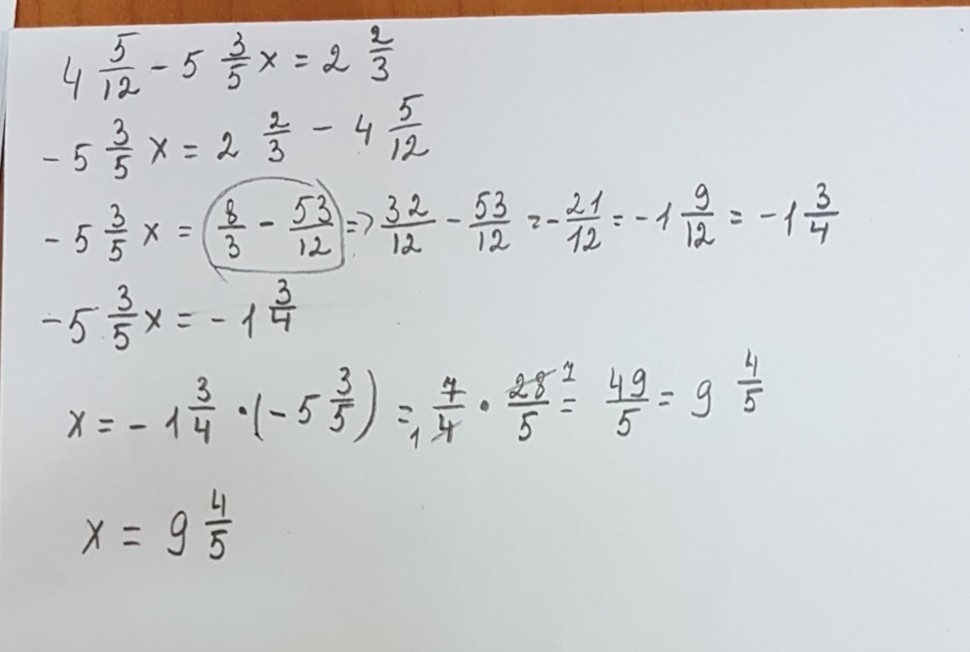 4 5/12 - 5 3/5 x = 2 2/3
- 5 3/5 x = 2 2/3 - 4 5/12
- 5 3/5 x = 8/3 - 53/12 => 32/12 - 53/12 = - 21/12 = - 1 9/12 = - 1 3/4
- 5 3/5 x = - 1 3/4
x = - 1 3/4 · (- 5 3/5) = 1 7/4 · 28/5 7 = 49/5 = 9 4/5
x = 9 4/5